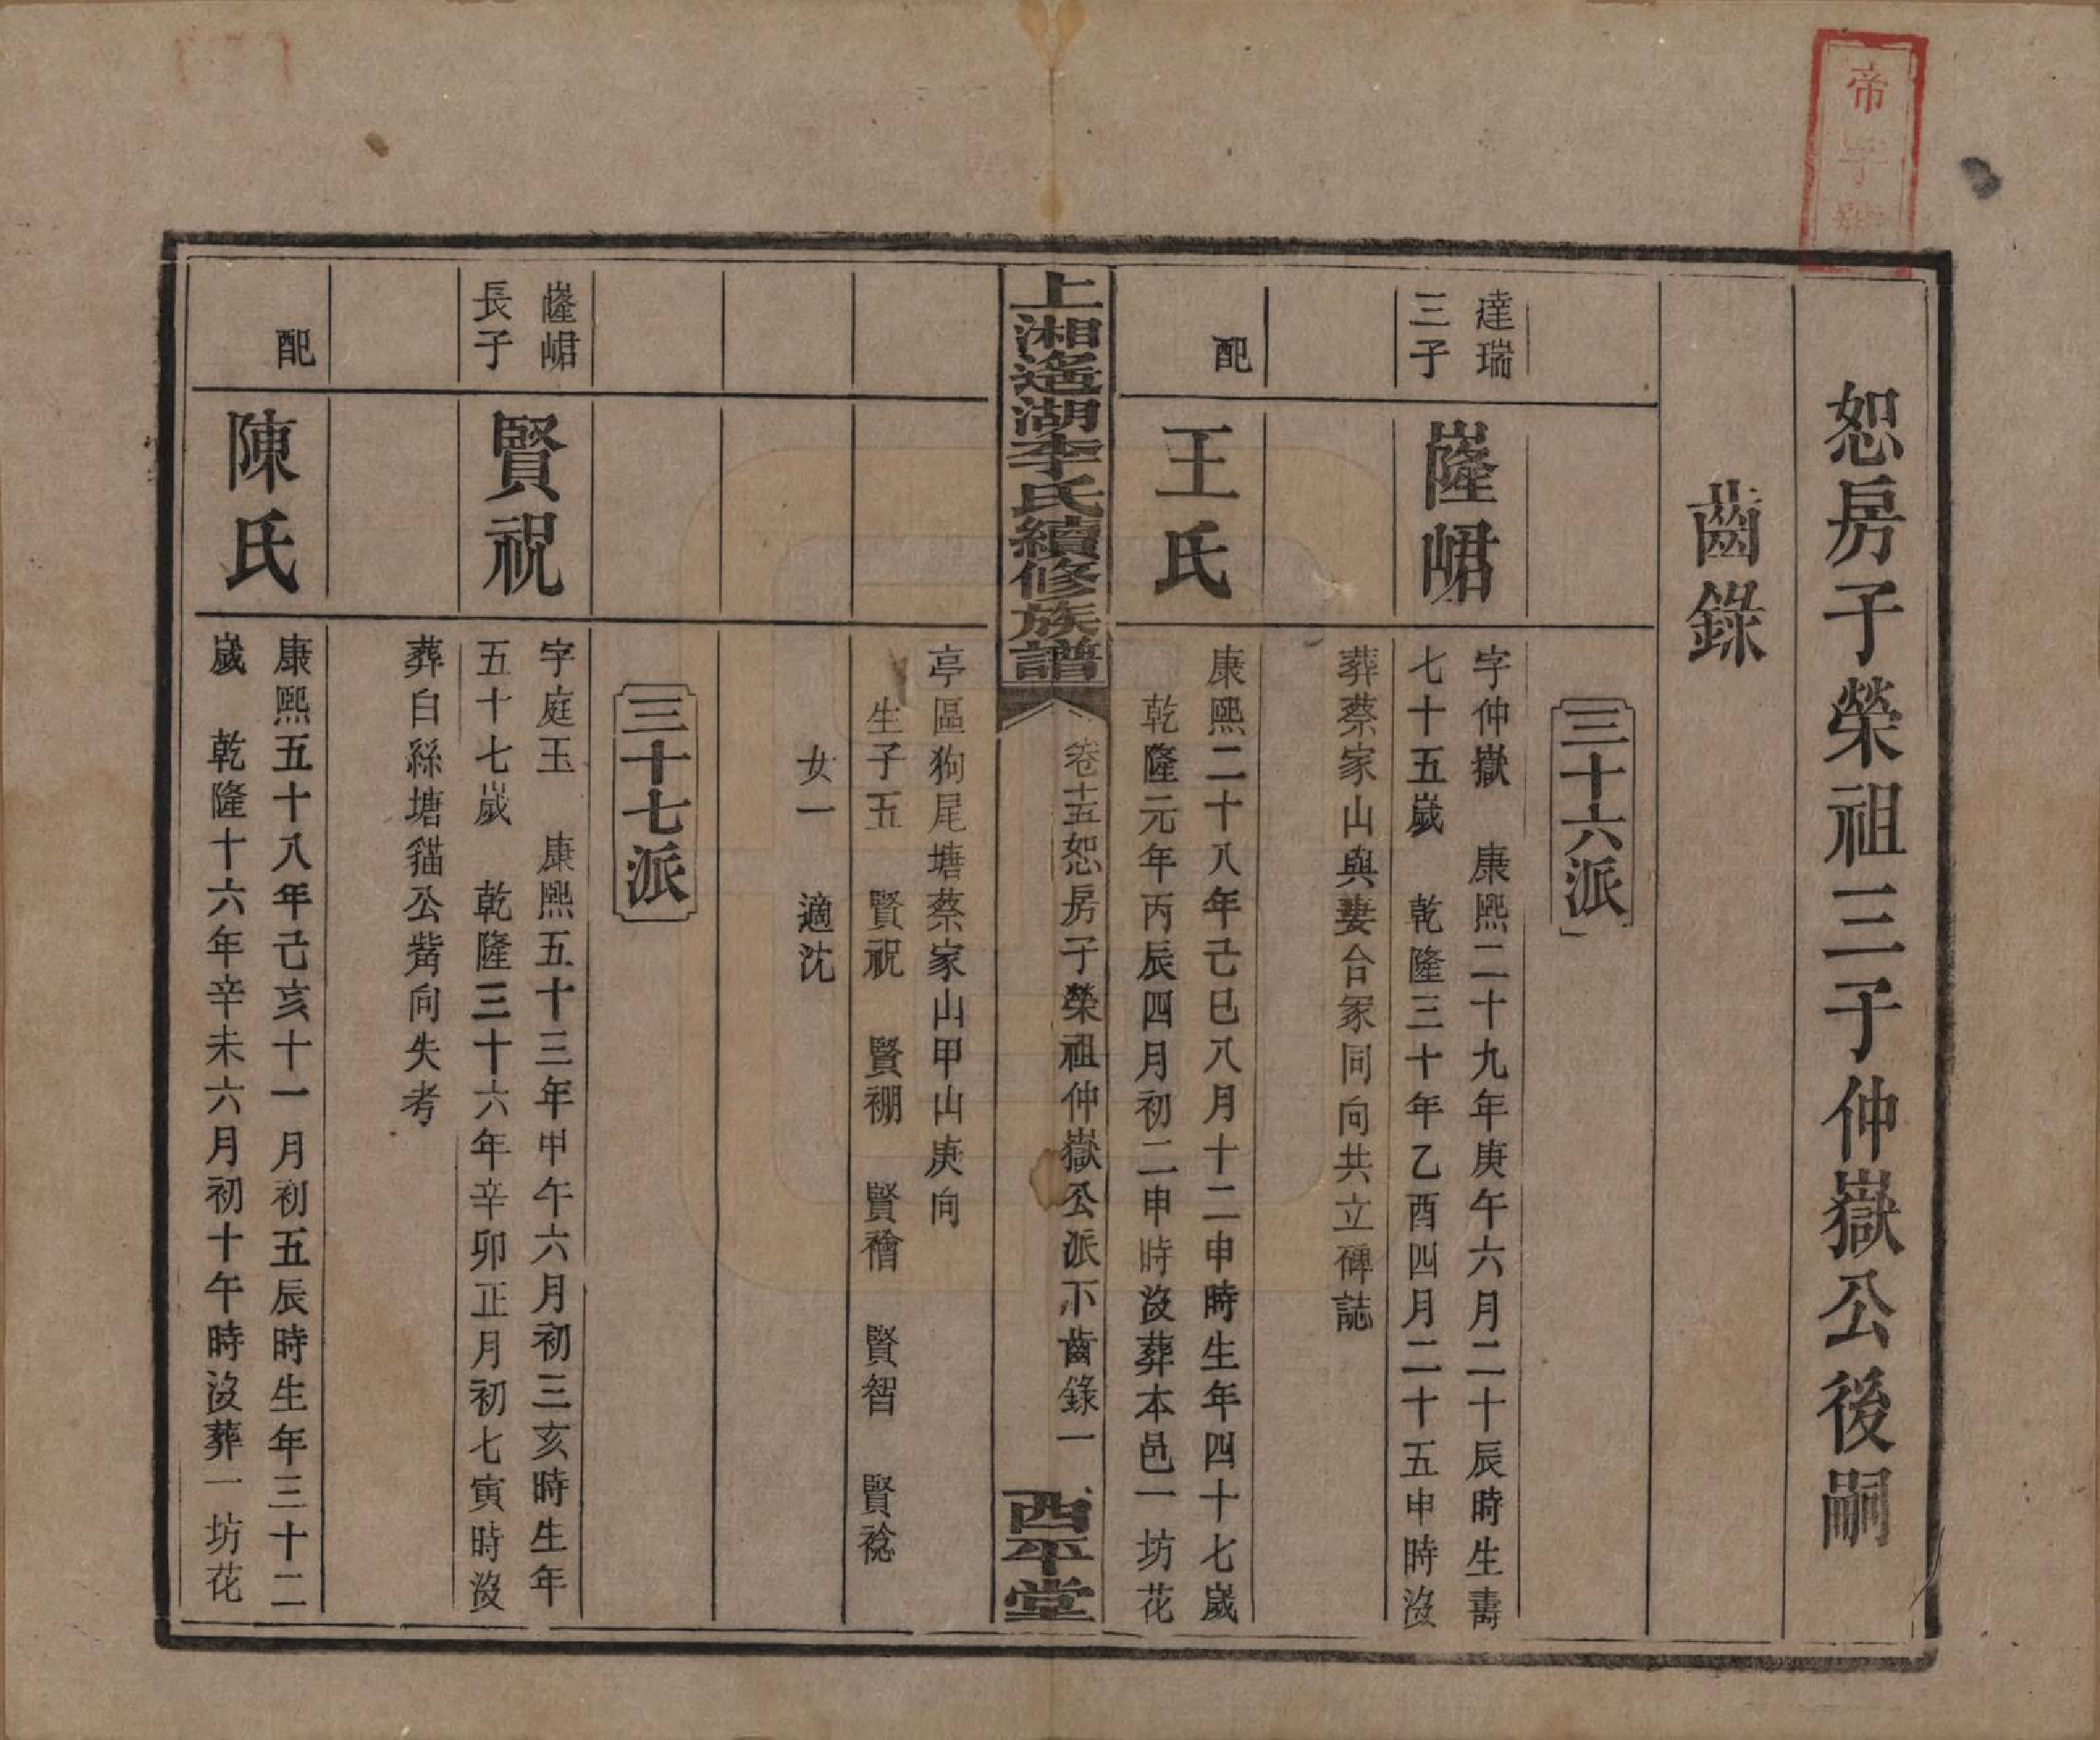 帝字號
恕房子榮祖三子仲嶽公後嗣
齒錄
三十六派
達瑞
三子
嶐峮
字仲嶽　康熙二十九年庚午六月二十辰時生壽
七十五歲　乾隆三十年乙酉四月二十五申時沒
葬蔡家山與妻合冢同向共立碑誌
配
王氏
康熙二十八年己巳八月十二申時生年四十七歲
乾隆元年丙辰四月初二申時沒葬本邑一坊花
上湘遙湖李氏續修族譜
卷十五恕房子榮祖仲嶽公派下齒錄一
西平堂
亭區狗尾塘蔡家山甲山庚向
生子五　賢祝　賢禰　賢禬　賢智　賢稔
女一　適沈
三十七派
嶐峮
長子
賢祝
字庭玉　康熙五十三年甲午六月初三亥時生年
五十七歲　乾隆三十六年辛卯正月初七寅時沒
葬白絲塘貓公觜向失考
配
陳氏
康熙五十八年己亥十一月初五辰時生年三十二
歲　乾隆十六年辛未六月初十午時沒葬一坊花